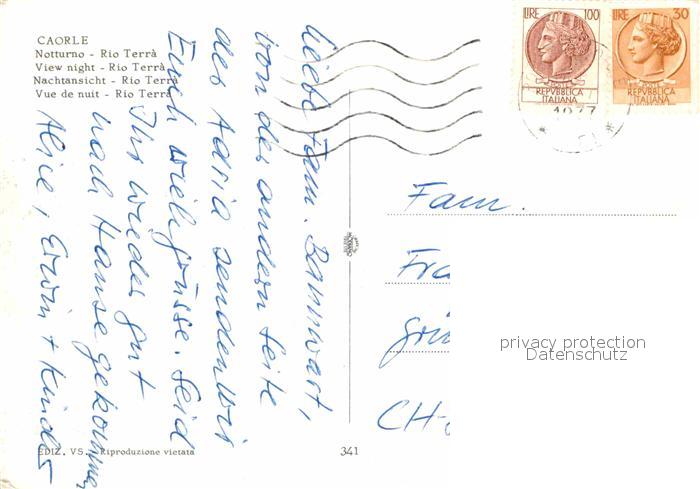 CAORLE
Notturno - Rio Terrà
View night - Rio Terrà
Nachtansicht - Rio Terrà
Vue de nuit - Rio Terrà
Liebe Fam. Bannwart,
von der andern Seite
der Adria senden wir
Euch viele Grüsse. Seid
Ihr wieder gut
nach Hause gekommen
Alice, Erwin + Kinder
EDIZ. VS. - Riproduzione vietata
341
LIRE 100
REPVBBLICA
ITALIANA
LIRE 30
REPVBBLICA
ITALIANA
Fam.
Fra
Grü
CH-
privacy protection
Datenschutz